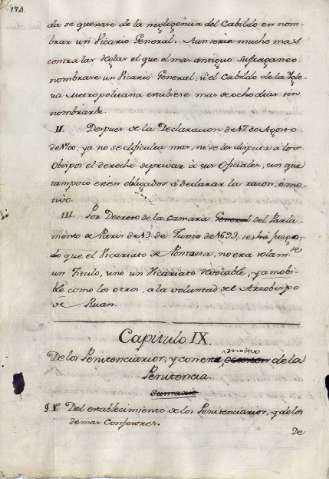 da se quexare de la negligencia del Cabildo en nom-
brar un Vicario General. Aun seria mucho mas
contra las reglas el que el mas antiguo sufraganeo
nombrare un Vicario General, si el Cabildo de la Igle
sia Metropolitana estubiere mas de ocho dias sin
nombrarle.
II. Despues de la Declaracion de de Agosto
de ya no se dificulta mas, ni se les disputa a los
Obispos el derecho de privar à sus Oficiales, sin que
tampoco esten obligados à declarar la razon, o mo
tivo.
III. Por Decreto de la Camara General del Parla-
mento de Paris de de Junio de se ha juzga-
do que el Vicariato de Pontoisa, no era solam.te
un Titulo, sino un Vicariato revocable, y amobi-
ble como los otros, a la voluntad del Arzobispo
de Ruan.
Capitulo IX.
De los Penitenciarios, y con este motivo de la
Penitencia.
Sumario
§ I. Del establecimiento de los Penitenciarios, y de los
demas Confesores.
De